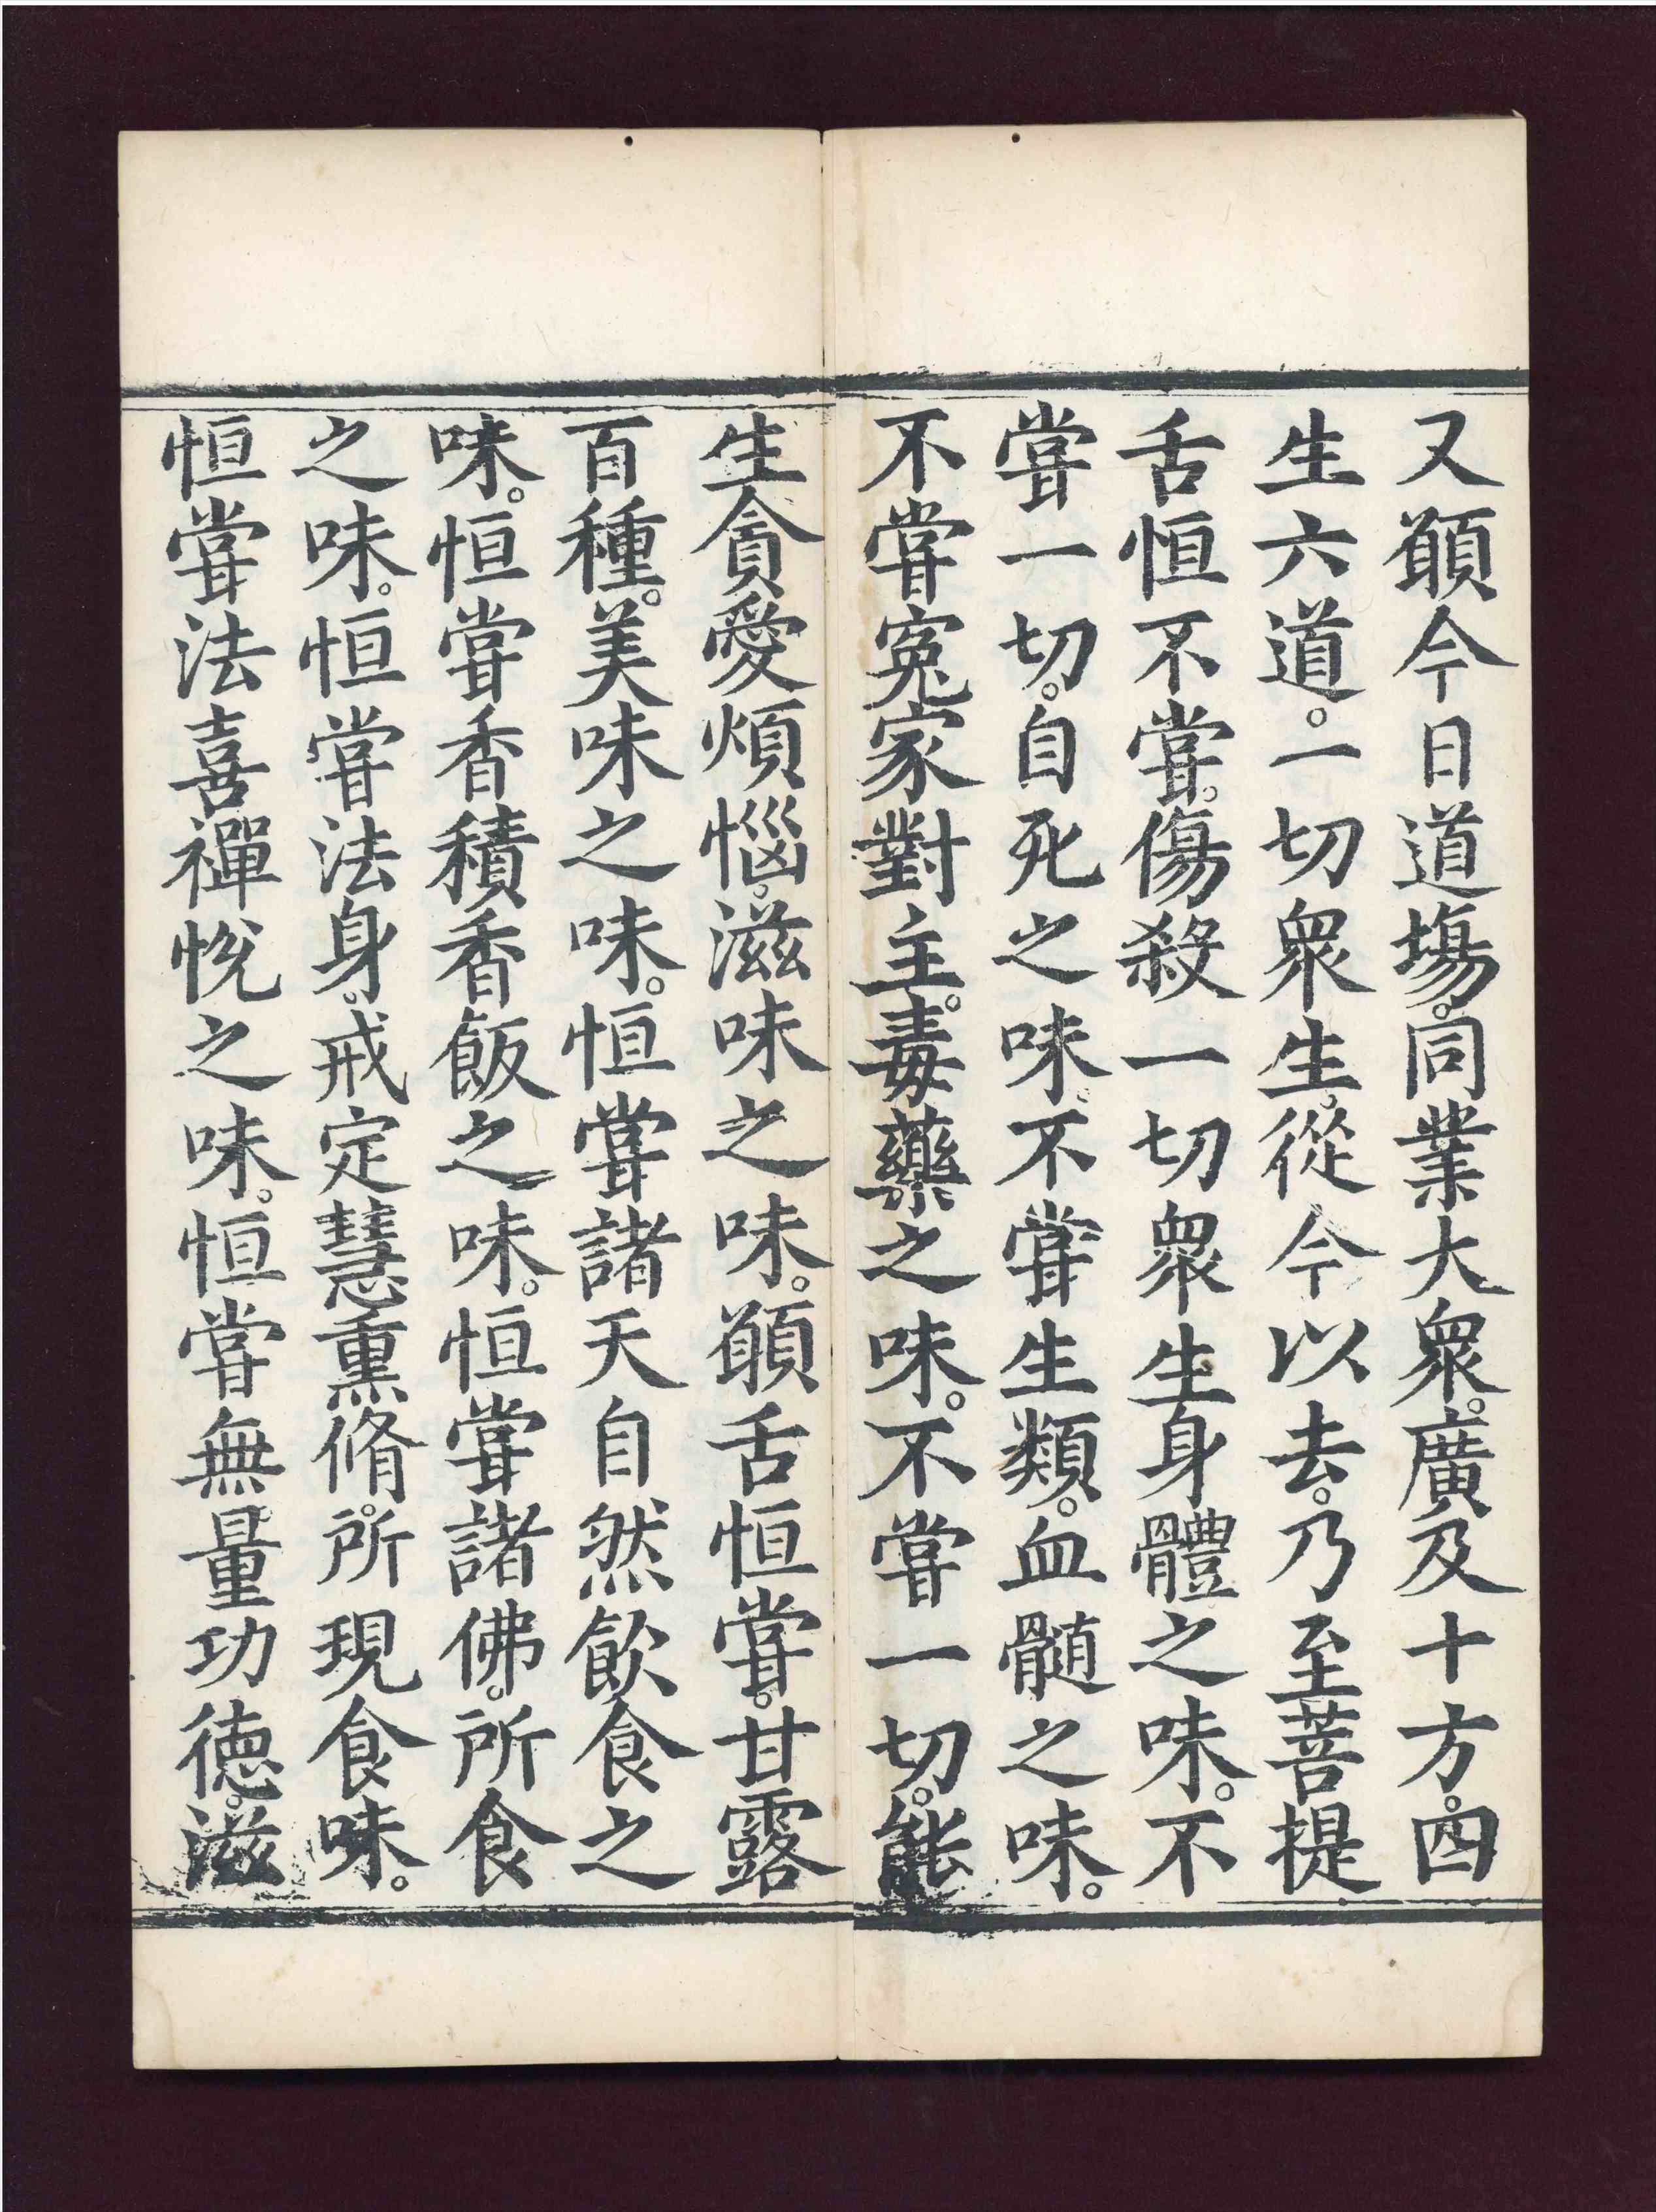 又願今日道場。同業大眾。廣及十方。四
生六道。一切眾生。從今以去。乃至菩提
舌恒不嘗。傷殺一切眾生身體之味。不
嘗一切。自死之味。不嘗生類。血髓之味。
不嘗寃家對主。毒藥之味。不嘗一切。能
生貪愛煩惱。滋味之味。願舌恒嘗。甘露
百種。美味之味。恒嘗諸天自然飲食之
味。恒嘗香積香飯之味。恒嘗諸佛。所食
之味。恒嘗法身。戒定慧熏脩。所現食味。
恒嘗法喜禪悅之味。恒嘗無量功德。滋